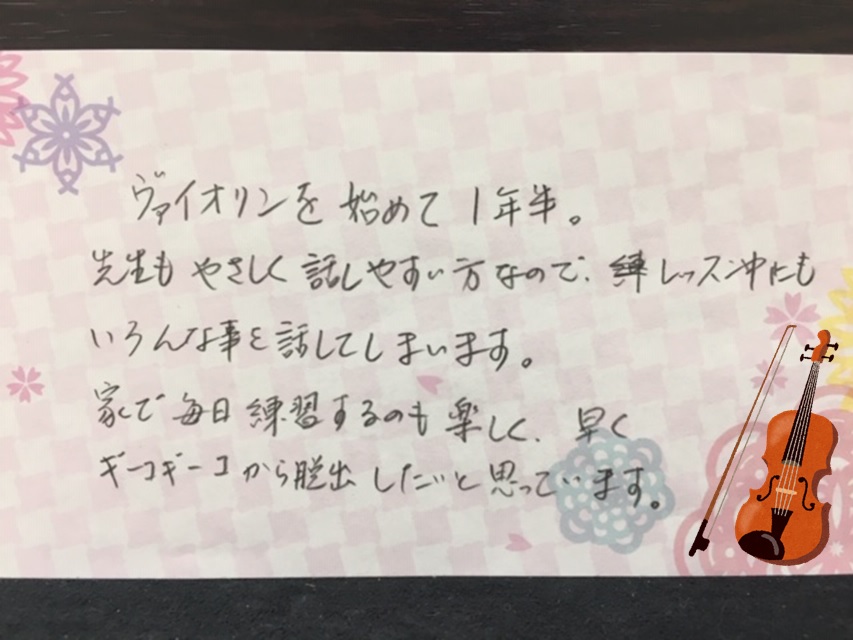 ヴァイオリンを始めて1年半。
先生もやさしく話しやすい方なので、レッスン中にも
いろんな事を話してしまいます。
家で毎日練習するのも楽しく、早く
ギーコギーコから脱出したいと思っています。